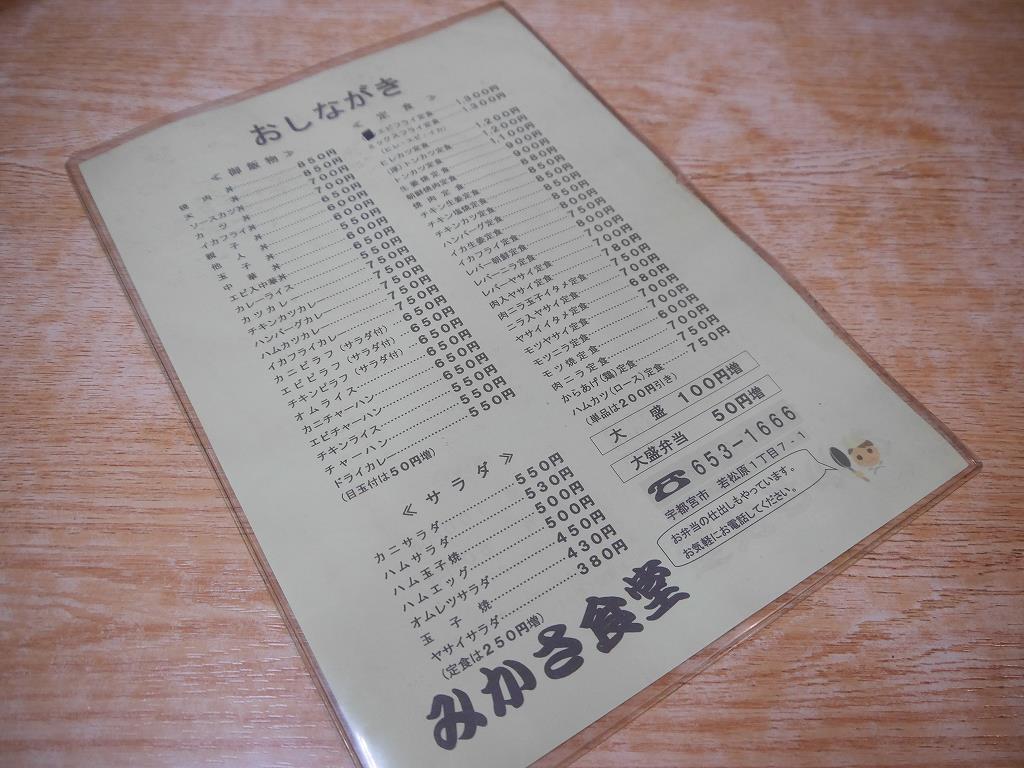 おしながき
≪御飯物≫
焼肉丼 850円
天丼 850円
ソースカツ丼 700円
カツ丼 700円
イカフライ丼 650円
親子丼 600円
他人丼 600円
玉子丼 550円
中華丼 600円
エビ入中華丼 650円
カレーライス 550円
カツカレー 750円
チキンカツカレー 750円
ハンバーグカレー 750円
ハムカツカレー 750円
イカフライカレー 750円
カニピラフ(サラダ付) 650円
エビピラフ(サラダ付) 650円
チキンピラフ(サラダ付) 650円
オムライス 650円
カニチャーハン 650円
エビチャーハン 650円
チキンライス 550円
チャーハン 550円
ドライカレー 550円
(目玉付は50円増)
≪サラダ≫
カニサラダ 550円
ハムサラダ 530円
ハム玉子焼 500円
ハムエッグ 500円
オムレツサラダ 450円
玉子焼 430円
ヤサイサラダ 380円
(定食は250円増)
≪定食≫
エビフライ定食 1300円
ミックスフライ定食 1300円
(ヒレ・エビ・イカ)
ヒレカツ定食 1200円
(厚)トンカツ定食 1200円
トンカツ定食 1100円
生姜焼定食 900円
朝鮮焼肉定食 900円
焼肉定食 880円
チキン生姜定食 850円
チキン塩焼定食 850円
チキンカツ定食 850円
ハンバーグ定食 800円
イカ生姜定食 750円
イカフライ定食 800円
レバー朝鮮定食 700円
レバーニラ定食 700円
レバーヤサイ定食 700円
肉入ヤサイ定食 780円
肉ニラ玉子イタメ定食 780円
ニラ入ヤサイ定食 700円
ヤサイイタメ定食 680円
モツヤサイ定食 700円
モツニラ定食 700円
モツ焼定食
肉ニラ定食 700円
からあげ(鶏)定食 750円
ハムカツ(ロース)定食 750円
(単品は200円引き)
大盛 100円増
大盛弁当 50円増
☎653-1666
宇都宮市 若松原1丁目7-1
お弁当の仕出しもやっています。
お気軽にお電話してください。
みかさ食堂